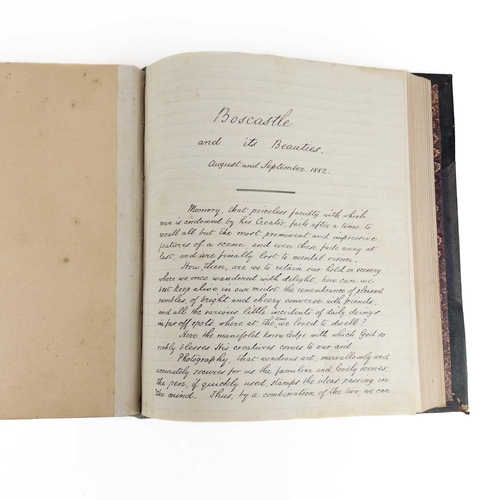 Boscastle
and its Beauties.
August and September 1882.
Memory, that priceless faculty with which
man is endowed by his Creator, fails after a time to
recall all but the most prominent and impressive
features of a scene, and even these fade away at
last, and are finally lost to mental vision.
How, then, are we to retain our hold on scenery
where we once wandered with delight, how can we
best keep alive in our midst the remembrance of pleasant
rambles, of bright and cheery converse with friends,
and all the various little incidents of daily doings
in far off spots, where at the time we loved to dwell?
Here the manifold knowledge with which God so
richly blesses His creatures comes to our aid
Photography, that wondrous art, marvellously and
accurately secures for us the familiar and lovely scenes,
the pen, if quickly used, stamps the ideas passing in
the mind. Thus, by a combination of the two, we can